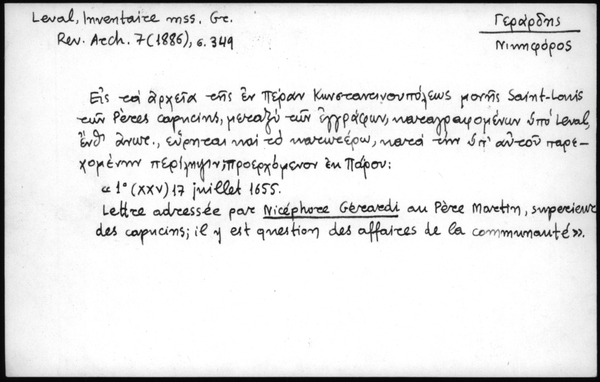 Leval, Inventaire mss. Gr.
Rev. Arch. 7 (1886), σ. 349
Γεράρδης
Νικηφόρος
Εἰς τά ἀρχεῖα τῆς ἐν Πέραν Κωνσταντινουπόλεως μονῆς Saint-Louis
τῶν Pères capucins, μεταξύ τῶν ἐγγράφων, καταγραφομένων ὑπό Leval,
ἔνθ' ἀνωτ., εὕρηται καί τό κατωτέρω, κατά τήν ὑπ' αὐτοῦ παρε-
χομένην περίληψιν, προερχόμενον ἐκ Πάρου:
« 1° (XXV) 17 juillet 1655.
Lettre adressée par Nicéphore Gérardi au Père Martin, supérieur
des capucins; il y est question des affaires de la communauté ».